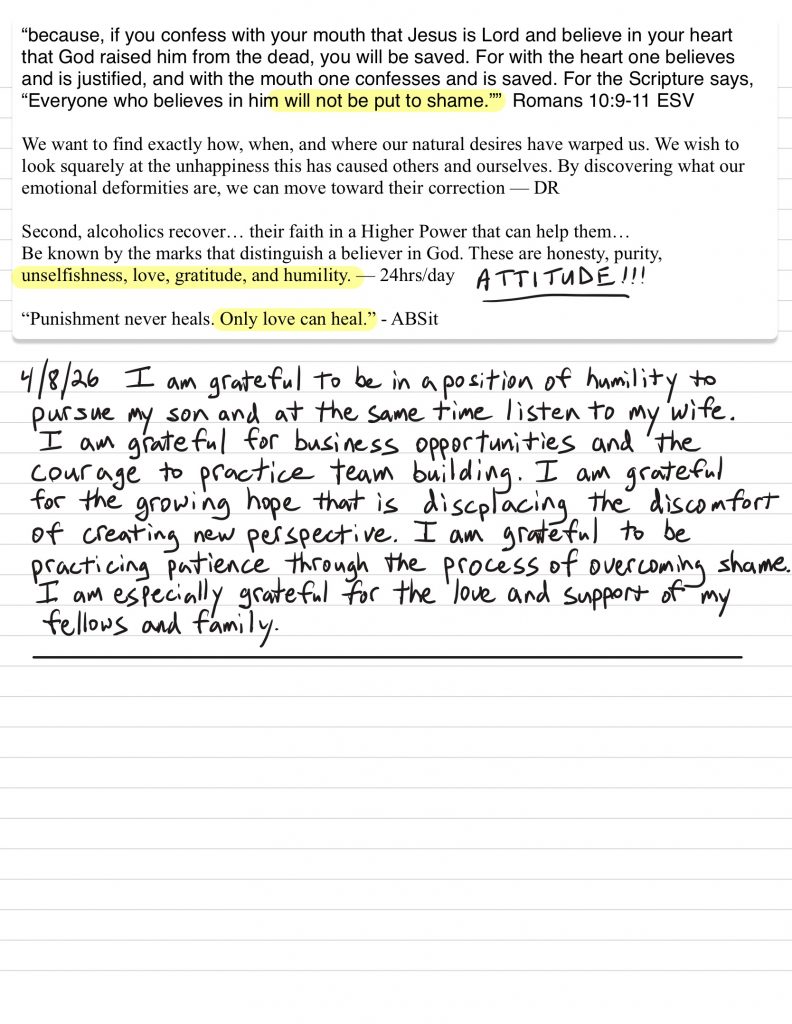 “because, if you confess with your mouth that Jesus is Lord and believe in your heart
that God raised him from the dead, you will be saved. For with the heart one believes
and is justified, and with the mouth one confesses and is saved. For the Scripture says,
“Everyone who believes in him will not be put to shame.”” Romans 10:9-11 ESV
We want to find exactly how, when, and where our natural desires have warped us. We wish to
look squarely at the unhappiness this has caused others and ourselves. By discovering what our
emotional deformities are, we can move toward their correction — DR
Second, alcoholics recover… their faith in a Higher Power that can help them…
Be known by the marks that distinguish a believer in God. These are honesty, purity,
unselfishness, love, gratitude, and humility. — 24hrs/day ATTITUDE!!!
“Punishment never heals. Only love can heal.” - ABSit
4/8/26 I am grateful to be in a position of humility to
pursue my son and at the same time listen to my wife.
I am grateful for business opportunities and the
courage to practice team building. I am grateful
for the growing hope that is discplacing the discomfort
of creating new perspective. I am grateful to be
practicing patience through the process of overcoming shame.
I am especially grateful for the love and support of my
fellows and family.